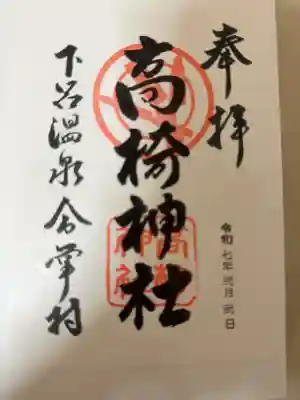 奉拝
令和七年弐月弐日
高椅神社
下呂温泉合掌村